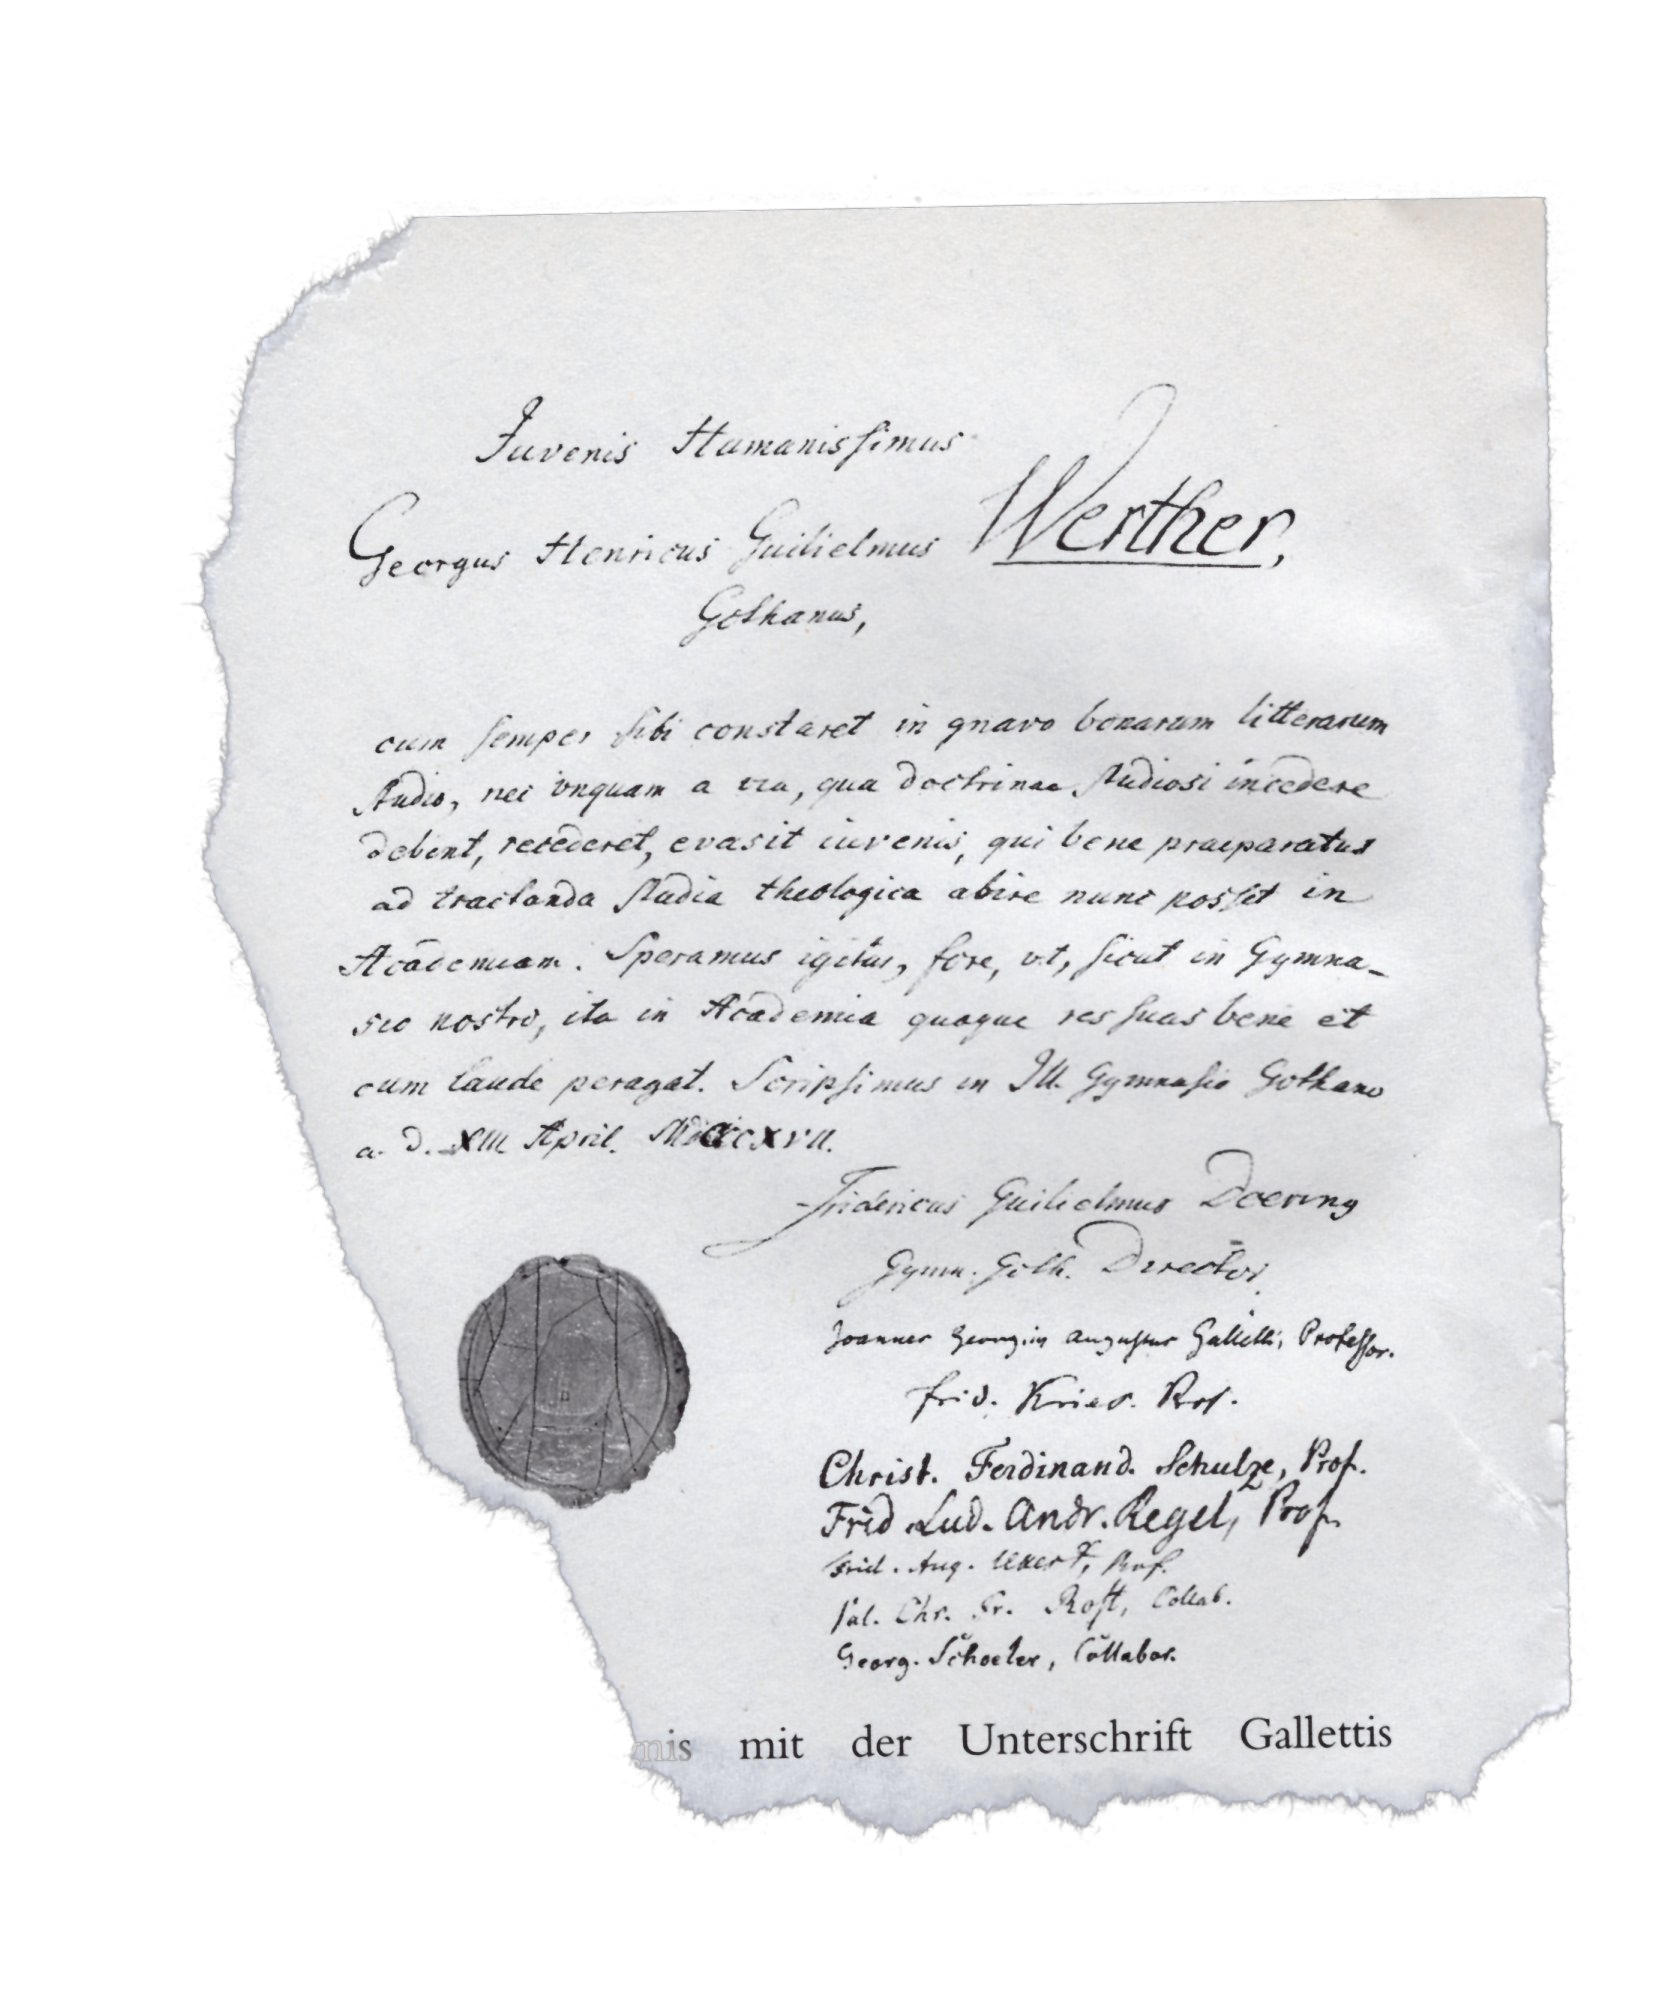 Juvenis Humanissimus
Georgus Henricus Guilielmus Werther,
Gothanus,
cum semper sibi constaret in gnavo bonarum litterarum
studio, nec vnquam a via, qua doctrinae studiosi incedere
debent, recederet, evasit iuvenis, qui bene praeparatus
ad tractanda studia theologica abire nunc posset in
Academiam. Speramus igitur, fore, vt, sicut in Gymna-
sio nostro, ita in Academia quoque res suas bene et
cum laude peragat. Scripsimus in Ill. Gymnasio Gothano
a. d. XIII April. MDCCCXVII.
Fridericus Guilielmus Doering
Gymn. Goth. Director.
Joannes Georgius Augustus Galletti, Professor.
Frid. Kries. Prof.
Christ. Ferdinand. Schulze, Prof.
Frid. Lud. Andr. Regel, Prof.
Frid. Aug. Ukert, Prof.
Val. Chr. Fr. Rost, Collab.
Georg. Schoeler, Collabor.
nis mit der Unterschrift Gallettis